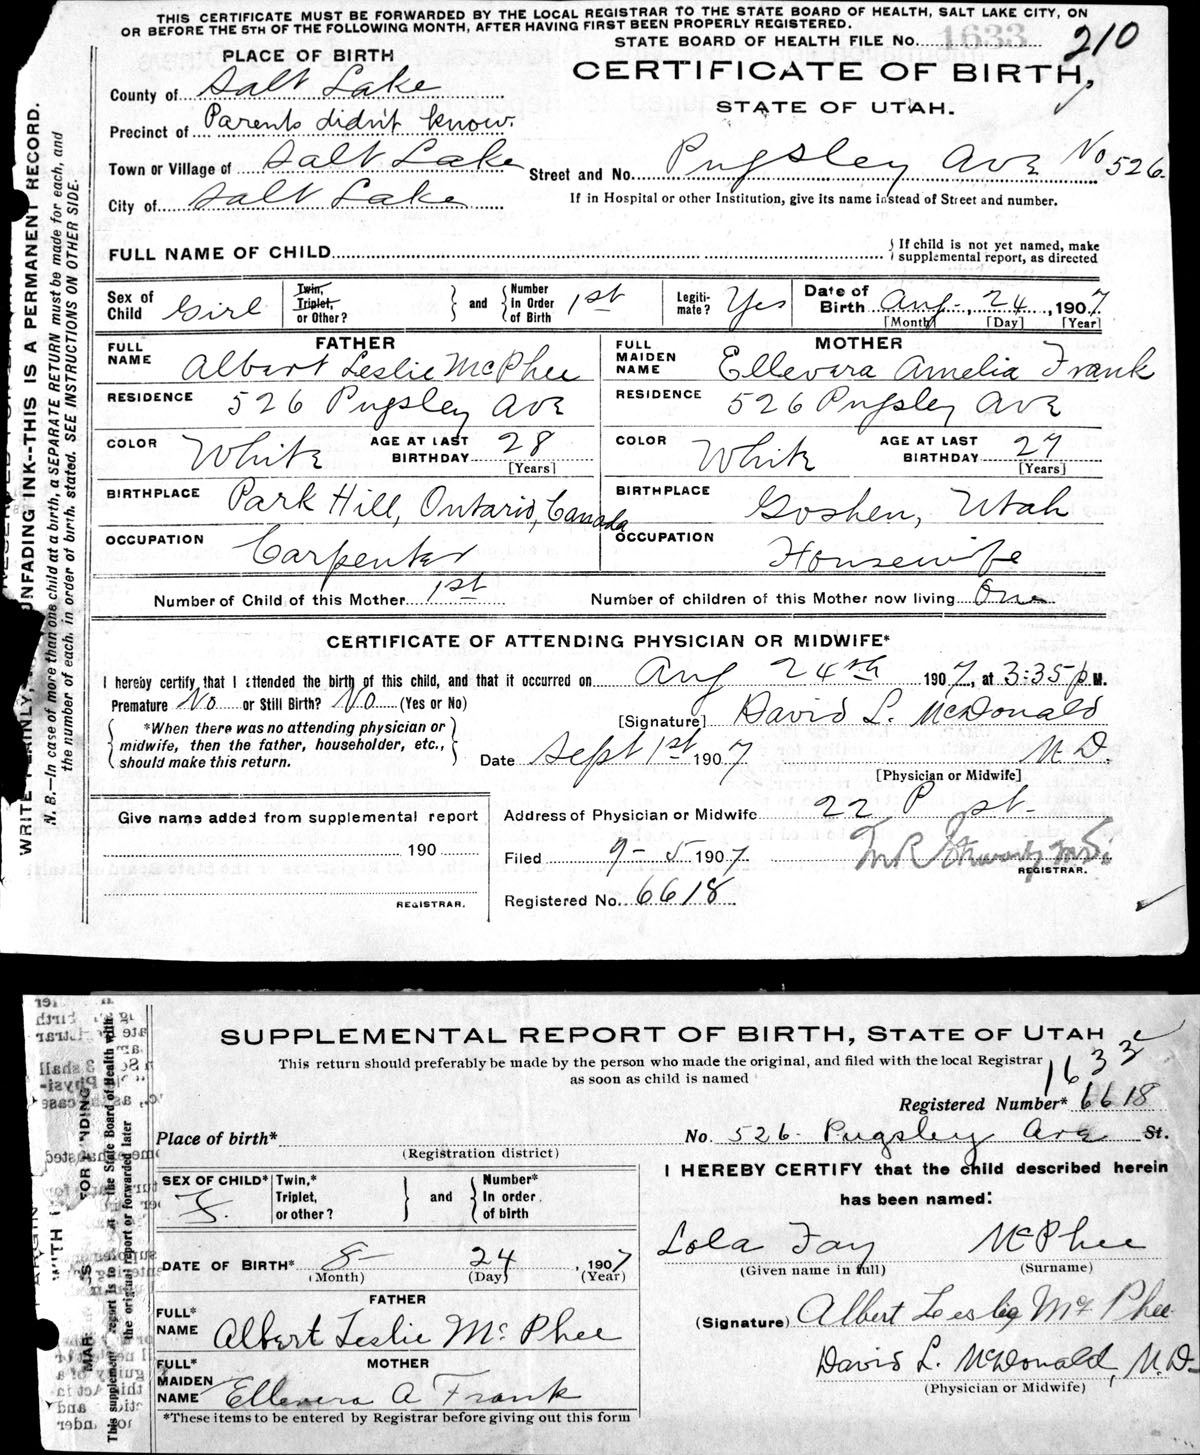 THIS CERTIFICATE MUST BE FORWARDED BY THE LOCAL REGISTRAR TO THE STATE BOARD OF HEALTH, SALT LAKE CITY, ON
OR BEFORE THE 5TH OF THE FOLLOWING MONTH, AFTER HAVING FIRST BEEN PROPERLY REGISTERED.
STATE BOARD OF HEALTH FILE No. 1633 210
PLACE OF BIRTH
CERTIFICATE OF BIRTH,
STATE OF UTAH.
County of Salt Lake
Precinct of Parents didn't know.
Town or Village of Salt Lake
Street and No. Pugsley Ave No 526.
City of Salt Lake
If in Hospital or other Institution, give its name instead of Street and number.
FULL NAME OF CHILD
If child is not yet named, make
supplemental report, as directed
Sex of Child Girl
Twin, Triplet, or Other?
and
Number In Order of Birth 1st
Legiti-mate? Yes
Date of Birth Aug. 24, 1907
[Month] [Day] [Year]
FATHER
FULL NAME Albert Leslie McPhee
RESIDENCE 526 Pugsley Ave
COLOR White
AGE AT LAST BIRTHDAY 28
[Years]
BIRTHPLACE Park Hill, Ontario, Canada
OCCUPATION Carpenter
MOTHER
FULL MAIDEN NAME Ellevara Amelia Frank
RESIDENCE 526 Pugsley Ave
COLOR White
AGE AT LAST BIRTHDAY 27
[Years]
BIRTHPLACE Goshen, Utah
OCCUPATION Housewife
Number of Child of this Mother 1st
Number of children of this Mother now living One
CERTIFICATE OF ATTENDING PHYSICIAN OR MIDWIFE*
I hereby certify that I attended the birth of this child, and that it occurred on Aug 24th 1907, at 3:35 p.M.
Premature No or Still Birth? No (Yes or No)
*When there was no attending physician or
midwife, then the father, householder, etc.,
should make this return.
[Signature] David L. McDonald
M.D.
Date Sept 1st 1907
[Physician or Midwife]
Give name added from supplemental report
190
REGISTRAR.
Address of Physician or Midwife 22 P st.
Filed 9-5 1907
REGISTRAR.
Registered No. 6618
WRITE PLAINLY, UNFADING INK--THIS IS A PERMANENT RECORD.
N. B.—In case of more than one child at a birth, a SEPARATE RETURN must be made for each, and
the number of each, in order of birth, stated. SEE INSTRUCTIONS ON OTHER SIDE.
SUPPLEMENTAL REPORT OF BIRTH, STATE OF UTAH
This return should preferably be made by the person who made the original, and filed with the local Registrar
as soon as child is named
1633
Registered Number* 6618
Place of birth*
No. 526 Pugsley Ave St.
(Registration district)
SEX OF CHILD* F.
Twin,* Triplet, or other?
and
Number* In order of birth
DATE OF BIRTH* 8- 24, 1907
(Month) (Day) (Year)
FATHER
FULL* NAME Albert Leslie McPhee
MOTHER
FULL* MAIDEN NAME Ellevera A Frank
*These items to be entered by Registrar before giving out this form
I HEREBY CERTIFY that the child described herein
has been named:
Lola Fay McPhee
(Given name in full) (Surname)
(Signature) Albert Leslie McPhee
David L. McDonald, M.D.
(Physician or Midwife)